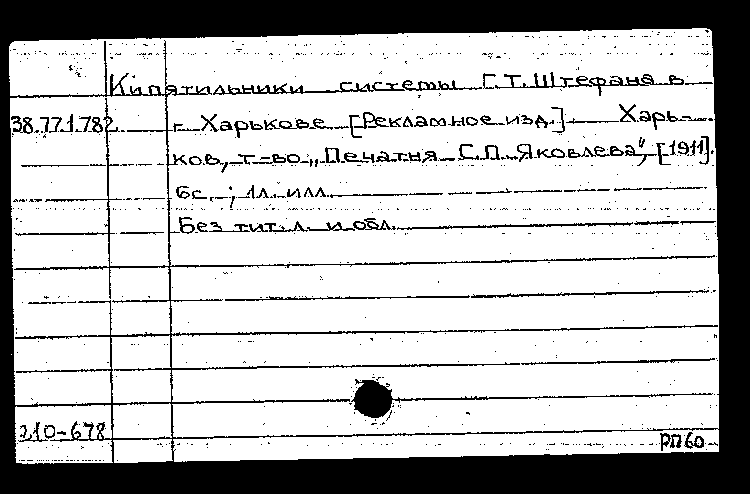 Кипятильники системы Г.Т. Штефана в
38.77.1.782 г. Харькове [Рекламное изд.]. Харь-
ков, т-во „Печатня С.П. Яковлева", [1911].
6с.; 1л. илл.
Без тит. л. и обл.
210-678
РП60